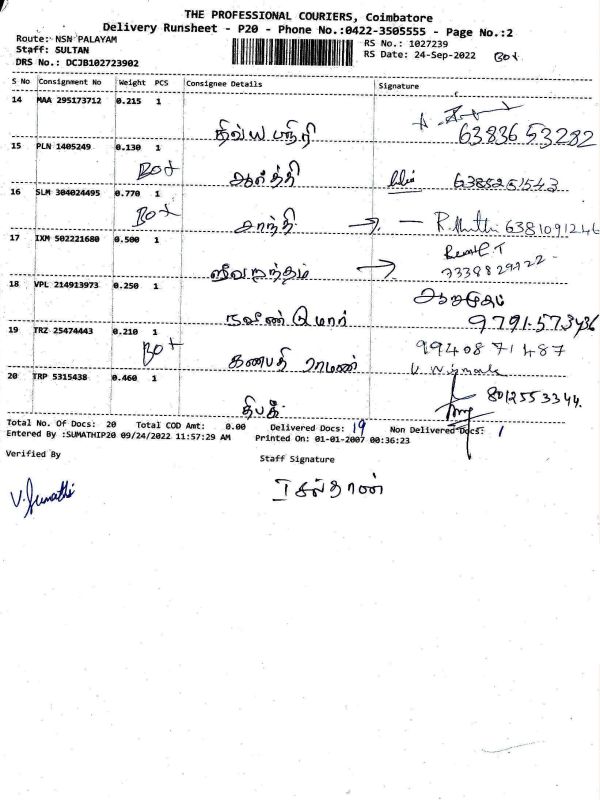 THE PROFESSIONAL COURIERS, Coimbatore
Delivery Runsheet - P20 - Phone No.:0422-3505555 - Page No.:2
Route: NSN PALAYAM
Staff: SULTAN
DRS No.: DCJB102723902
RS No.: 1027239
RS Date: 24-Sep-2022 Box
S No Consignment No Weight PCS Consignee Details Signature
14 MAA 295173712 0.215 1
திவ்ய பாரதி 6383653282
15 PLN 1405249 0.130 1
Box ஆர்த்தி 6385261543
16 SLM 304024495 0.770 1
Box சாந்தி 6381091246
17 IXM 502221680 0.500 1
ஜீவானந்தம் 7339829722
18 VPL 214913973 0.250 1
நவீண் குமார் 9791573436
19 TRZ 25474443 0.210 1
Box கணபதி ராமண் 9940871487
20 TRP 5315438 0.460 1
தீபக் 8012553344
Total No. Of Docs: 20 Total COD Amt: 0.00 Delivered Docs: 19 Non Delivered Docs: 1
Entered By :SUMATHIP20 09/24/2022 11:57:29 AM Printed On: 01-01-2007 00:36:23
Verified By Staff Signature
V. Sumathi I சுல்தாண்